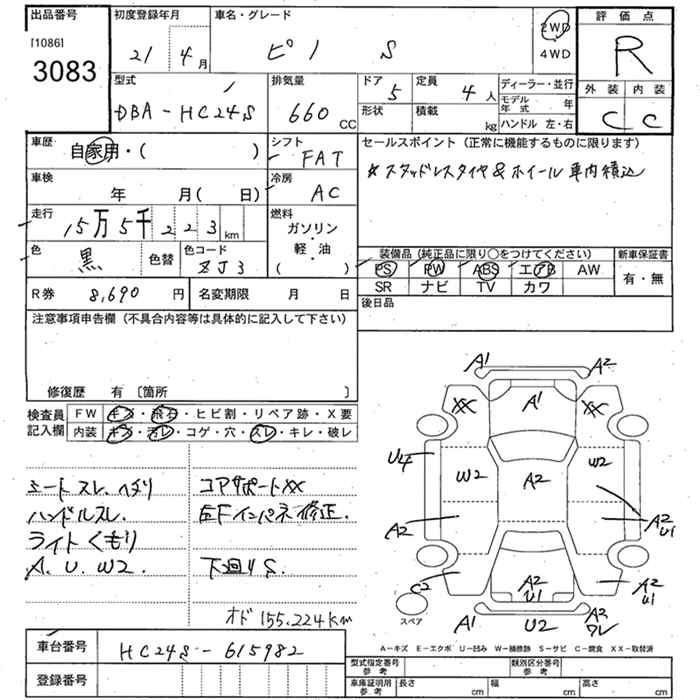 出品番号
[1086]
3083
初度登録年月
21年 4月
車名・グレード
ピノ S
2WD
4WD
評価点
R
外装 内装
C C
型式
DBA-HC24S
排気量
660 CC
ドア
5
定員
4人
形状
積載
kg
ディーラー・並行
モデル年式 年
ハンドル 左・右
車歴
自家用・( )
シフト
FAT
車検
年 月( 日)
冷房
AC
走行
15万5千223km
燃料
ガソリン
・
軽・油
( )
色
黒
色替
色コード
ZJ3
セールスポイント (正常に機能するものに限ります)
スタッドレスタイヤ&ホイール 車内積込
装備品 (純正品に限り○をつけてください)
新車保証書
PS PW ABS エアB AW
SR ナビ TV カワ
有・無
R券 8,690円
名変期限 月 日
後日品
注意事項申告欄 (不具合内容等は具体的に記入して下さい)
修復歴 有 〔箇所 〕
検査員記入欄
FW キズ・飛石・ヒビ割・リペア跡・X要
内装 キズ・汚レ・コゲ・穴・スレ・キレ・破レ
シートスレ、ヘタリ
ハンドルスレ.
ライトくもり
A. U. W2.
コアサポートXX
左Fインパネ修正.
下廻りS.
オド 155,224km
A1 A2
XX A1 XX
U4 W2 A2 W2
A2 A2 U1
C2 A2 U1 A2 U1
スペア
A1 U2 A2 ワレ
A-キズ E-エクボ U-凹み W-補修跡 S-サビ C-腐食 XX-取替済
車台番号
HC24S-615982
登録番号
型式指定番号 参考
類別区分番号 参考
車庫証明用 参考
長さ cm
幅 cm
高さ cm